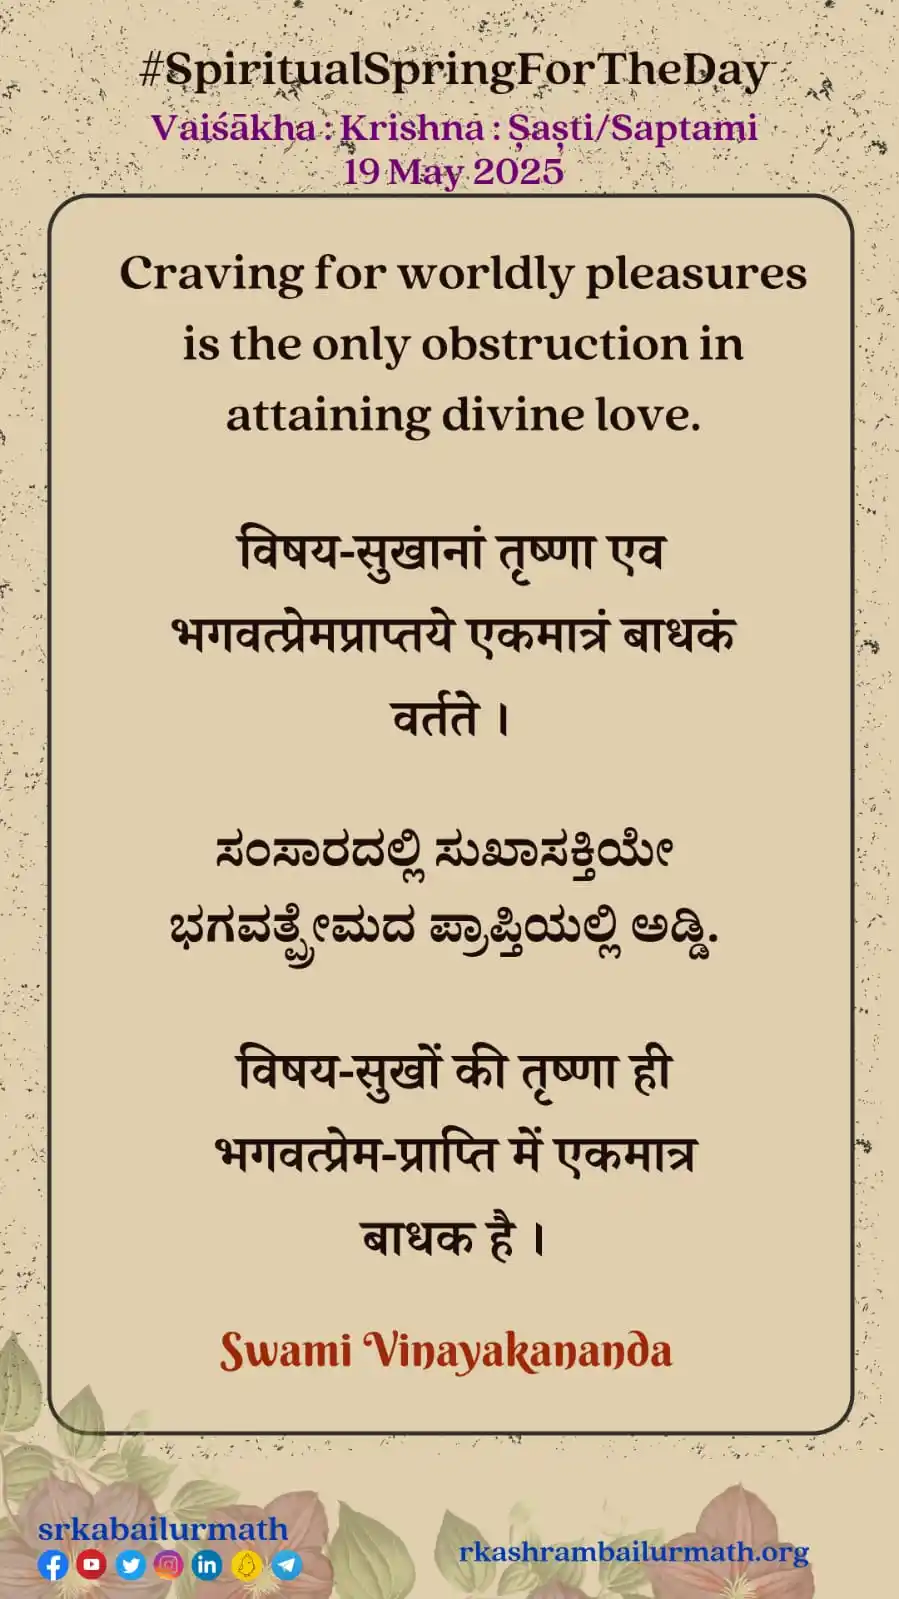 #SpiritualSpringForTheDay
Vaiśākha : Krishna : Ṣaṣṭi/Saptami
19 May 2025
Craving for worldly pleasures
is the only obstruction in
attaining divine love.
विषय-सुखानां तृष्णा एव
भगवत्प्रेमप्राप्तये एकमात्रं बाधकं
वर्तते ।
ಸಂಸಾರದಲ್ಲಿ ಸುಖಾಸಕ್ತಿಯೇ
ಭಗವತ್ಪ್ರೇಮದ ಪ್ರಾಪ್ತಿಯಲ್ಲಿ ಅಡ್ಡಿ.
विषय-सुखों की तृष्णा ही
भगवत्प्रेम-प्राप्ति में एकमात्र
बाधक है ।
Swami Vinayakananda
srkabailurmath
rkashrambailurmath.org